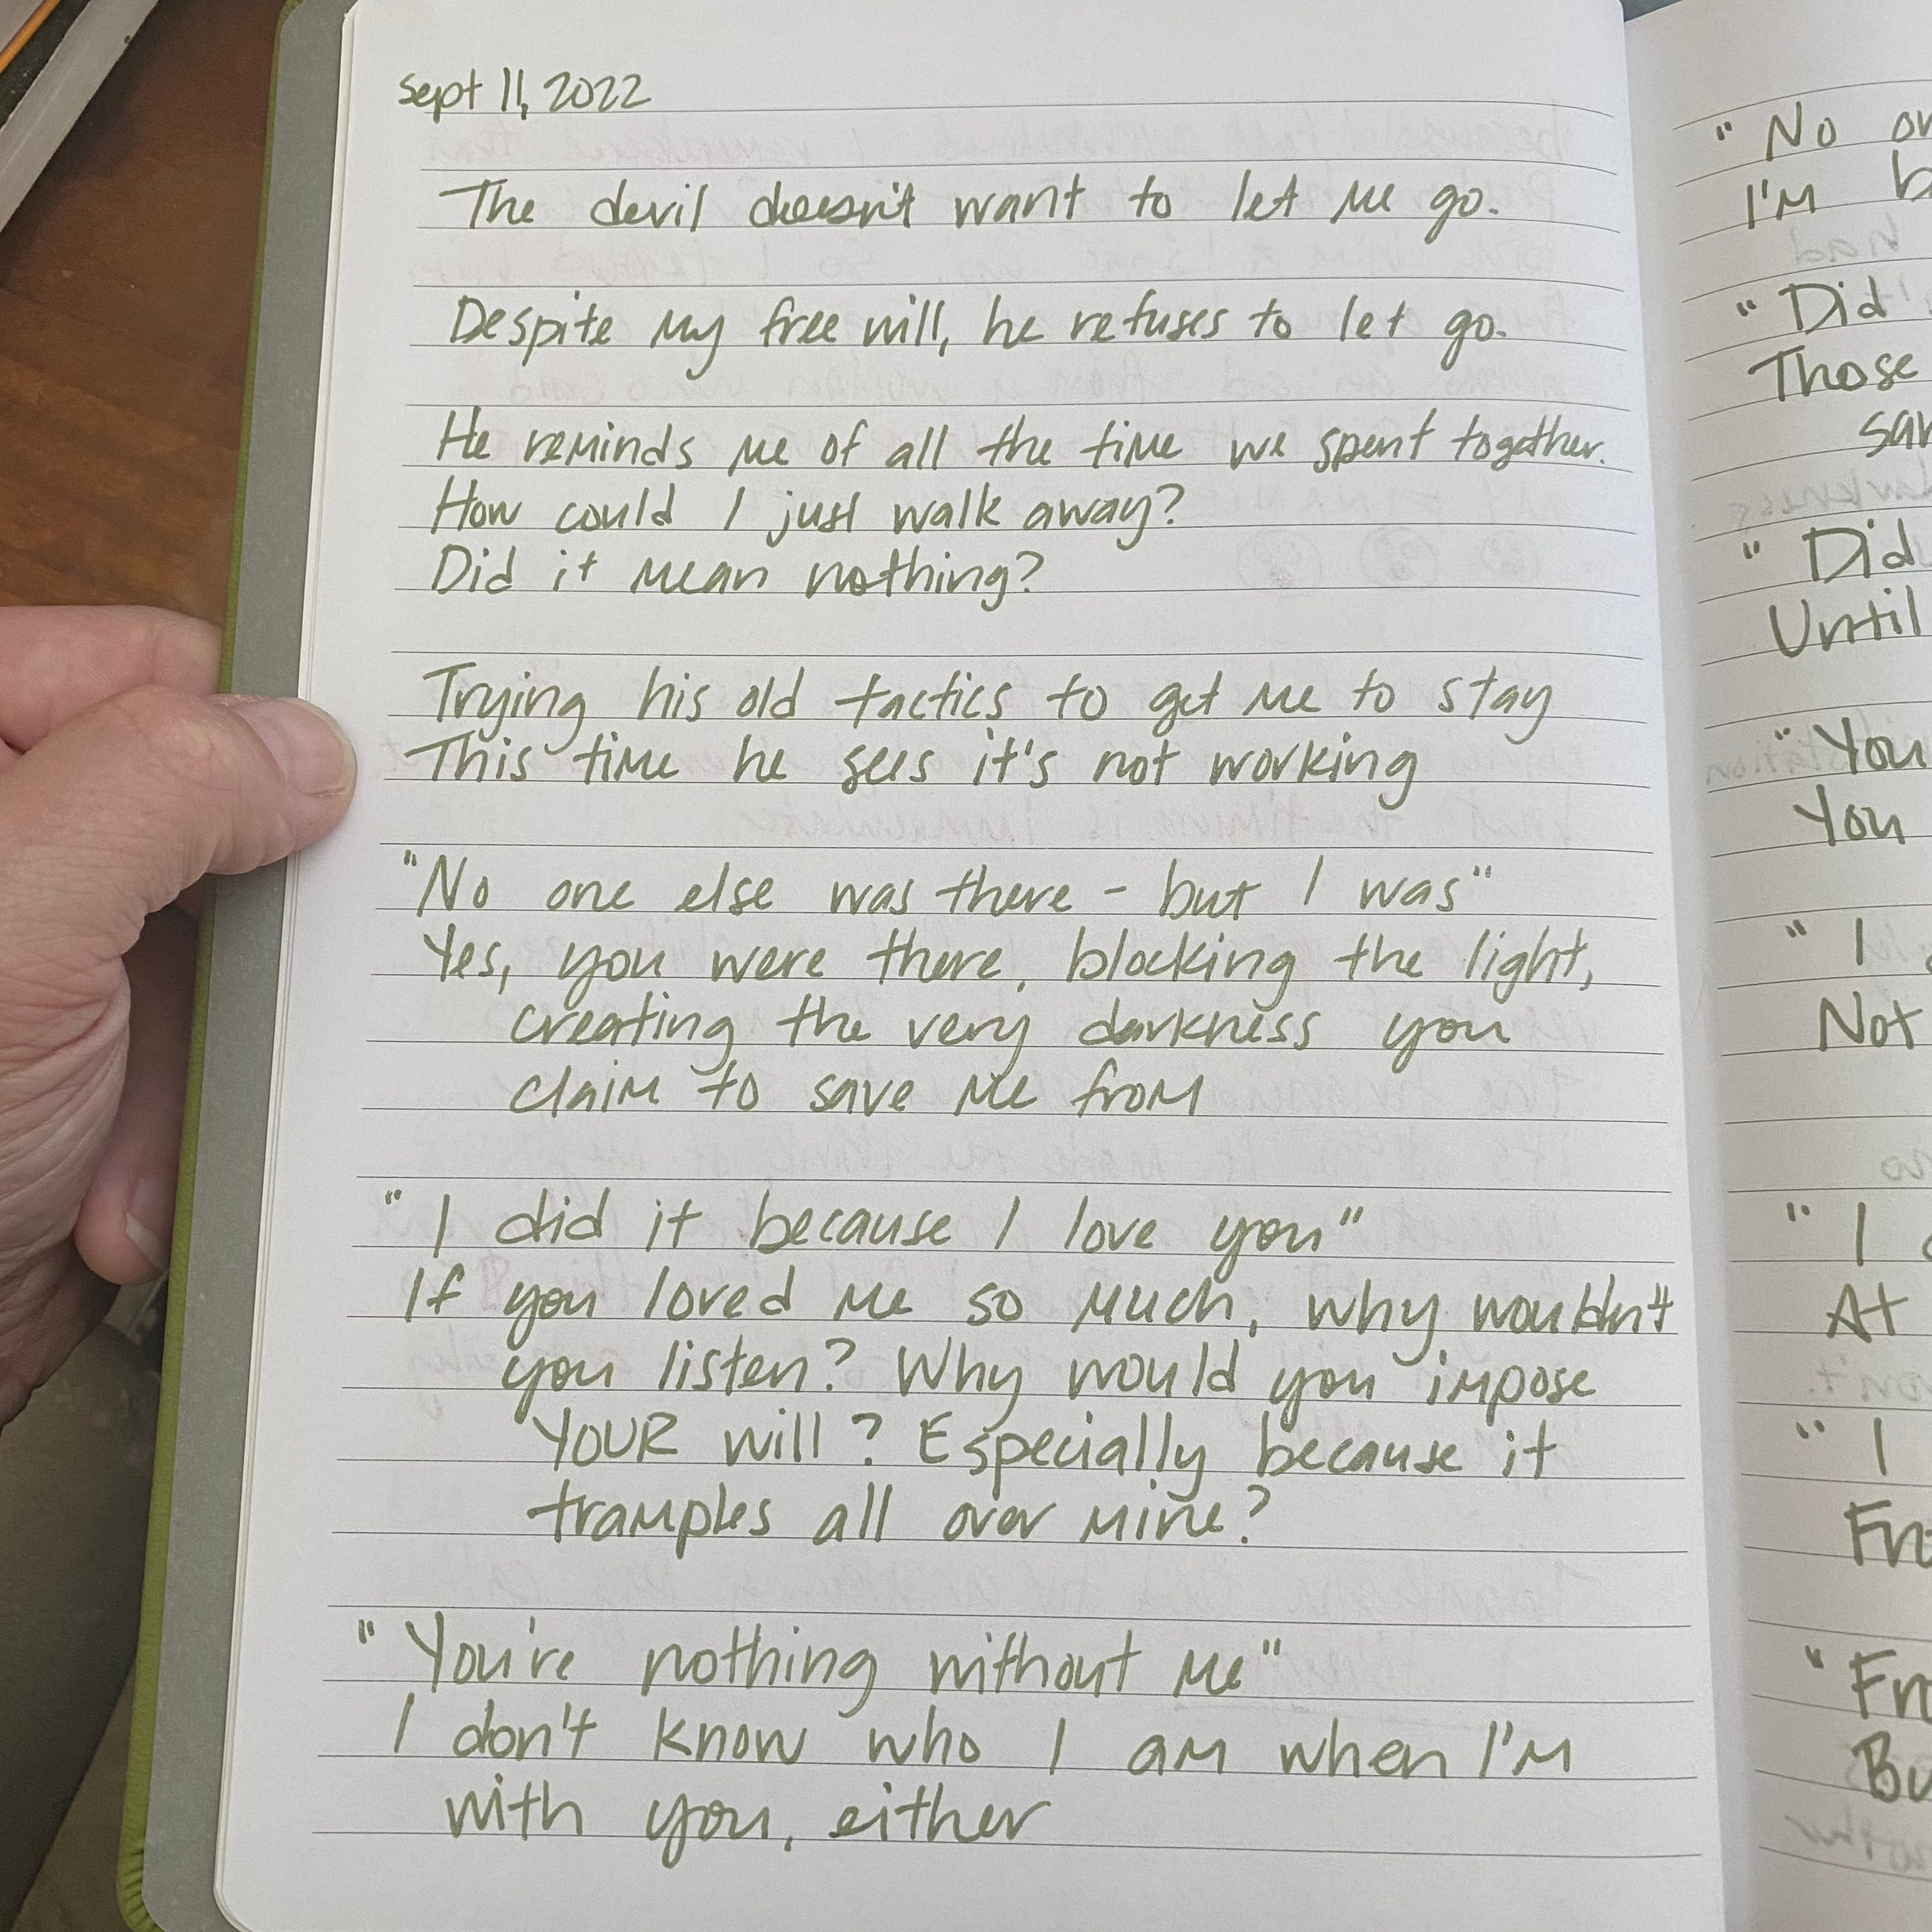 Sept 11, 2022
The devil doesn't want to let me go.
Despite my free will, he refuses to let go.
He reminds me of all the time we spent together.
How could I just walk away?
Did it mean nothing?
Trying his old tactics to get me to stay
This time he sees it's not working
"No one else was there - but I was"
Yes, you were there, blocking the light,
creating the very darkness you
claim to save me from
"I did it because I love you"
If you loved me so much, why wouldn't
you listen? Why would you impose
YOUR will? Especially because it
tramples all over mine?
"You're nothing without me"
I don't know who I am when I'm
with you, either
"No
I'M
"Did
Those
"Did
Until
"You
You
"I
Not
"I
At
"I
"